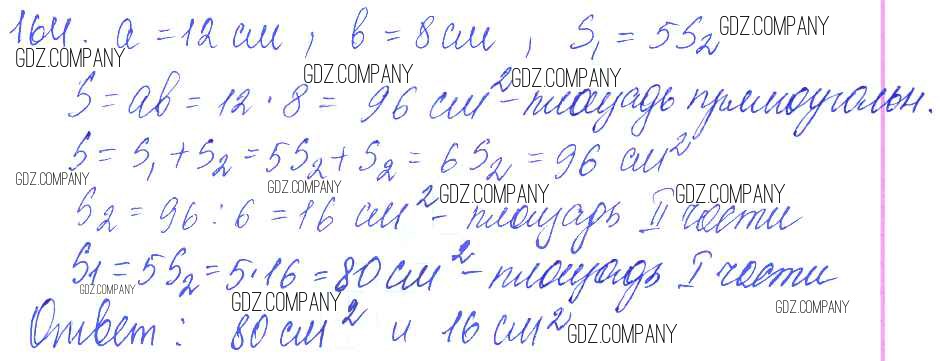 164. a = 12 см, b = 8 см, S₁ = 5S₂
GDZ.COMPANY GDZ.COMPANY GDZ.COMPANY
S = ab = 12 · 8 = 96 см² - площадь прямоугольн.
GDZ.COMPANY
S = S₁ + S₂ = 5S₂ + S₂ = 6S₂ = 96 см²
GDZ.COMPANY GDZ.COMPANY GDZ.COMPANY GDZ.COMPANY
S₂ = 96 : 6 = 16 см² - площадь II части
S₁ = 5S₂ = 5·16 = 80 см² - площадь I части
GDZ.COMPANY GDZ.COMPANY GDZ.COMPANY
Ответ: 80 см² и 16 см²
GDZ.COMPANY